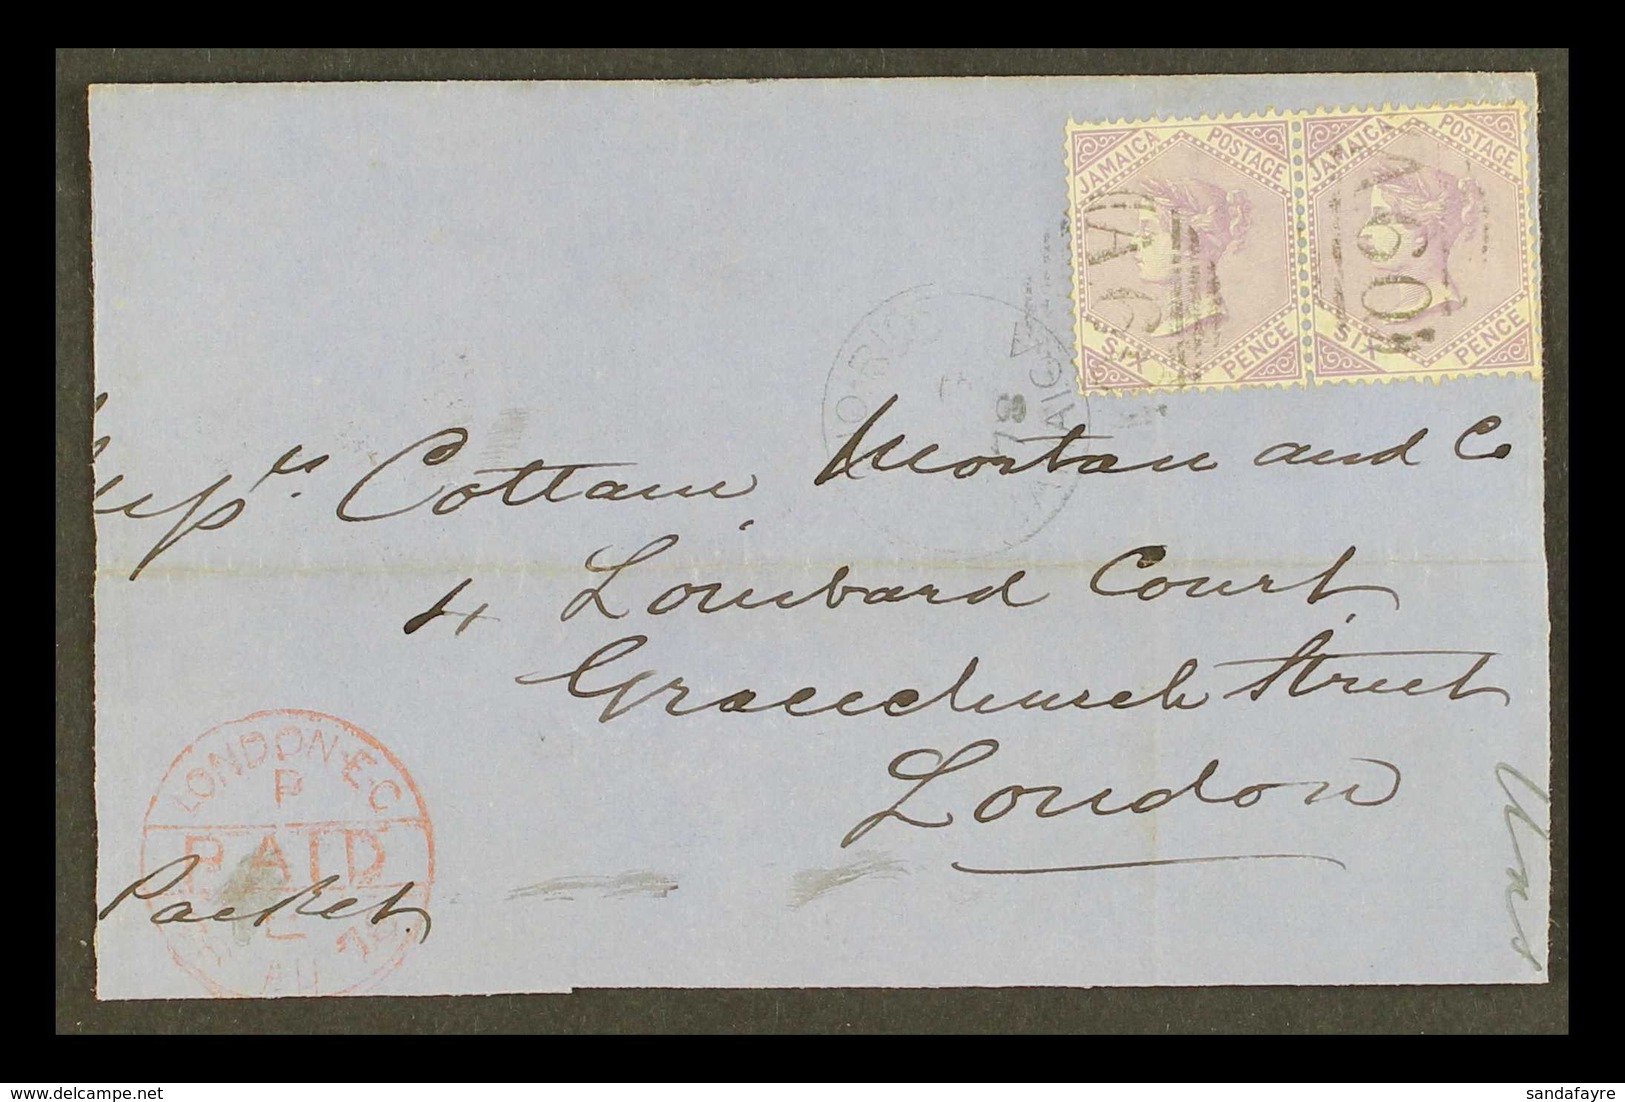 JAMAICA POSTAGE
SIX PENCE
JAMAICA POSTAGE
SIX PENCE
A60
78
Messrs. Cottam Mortan and Co
4 Lombard Court
Gracechurch Street
London
LONDON·E.C.
P
PAID
AU
Packet
sandafayre